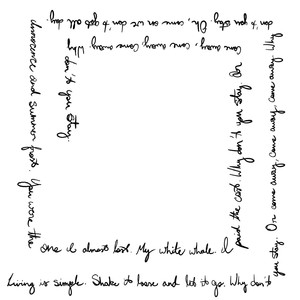 Living is simple. Shake to loose and let to go. Why don't
you stay. Or come away, come away, come away. Why
don't you stay. Oh, come on we don't got all day.
Innocence and summer fruit. You were the
one I almost lost. My white whale. I
paid the cost. Why don't you stay. Or
come away, come away, come away. Why
don't you stay.